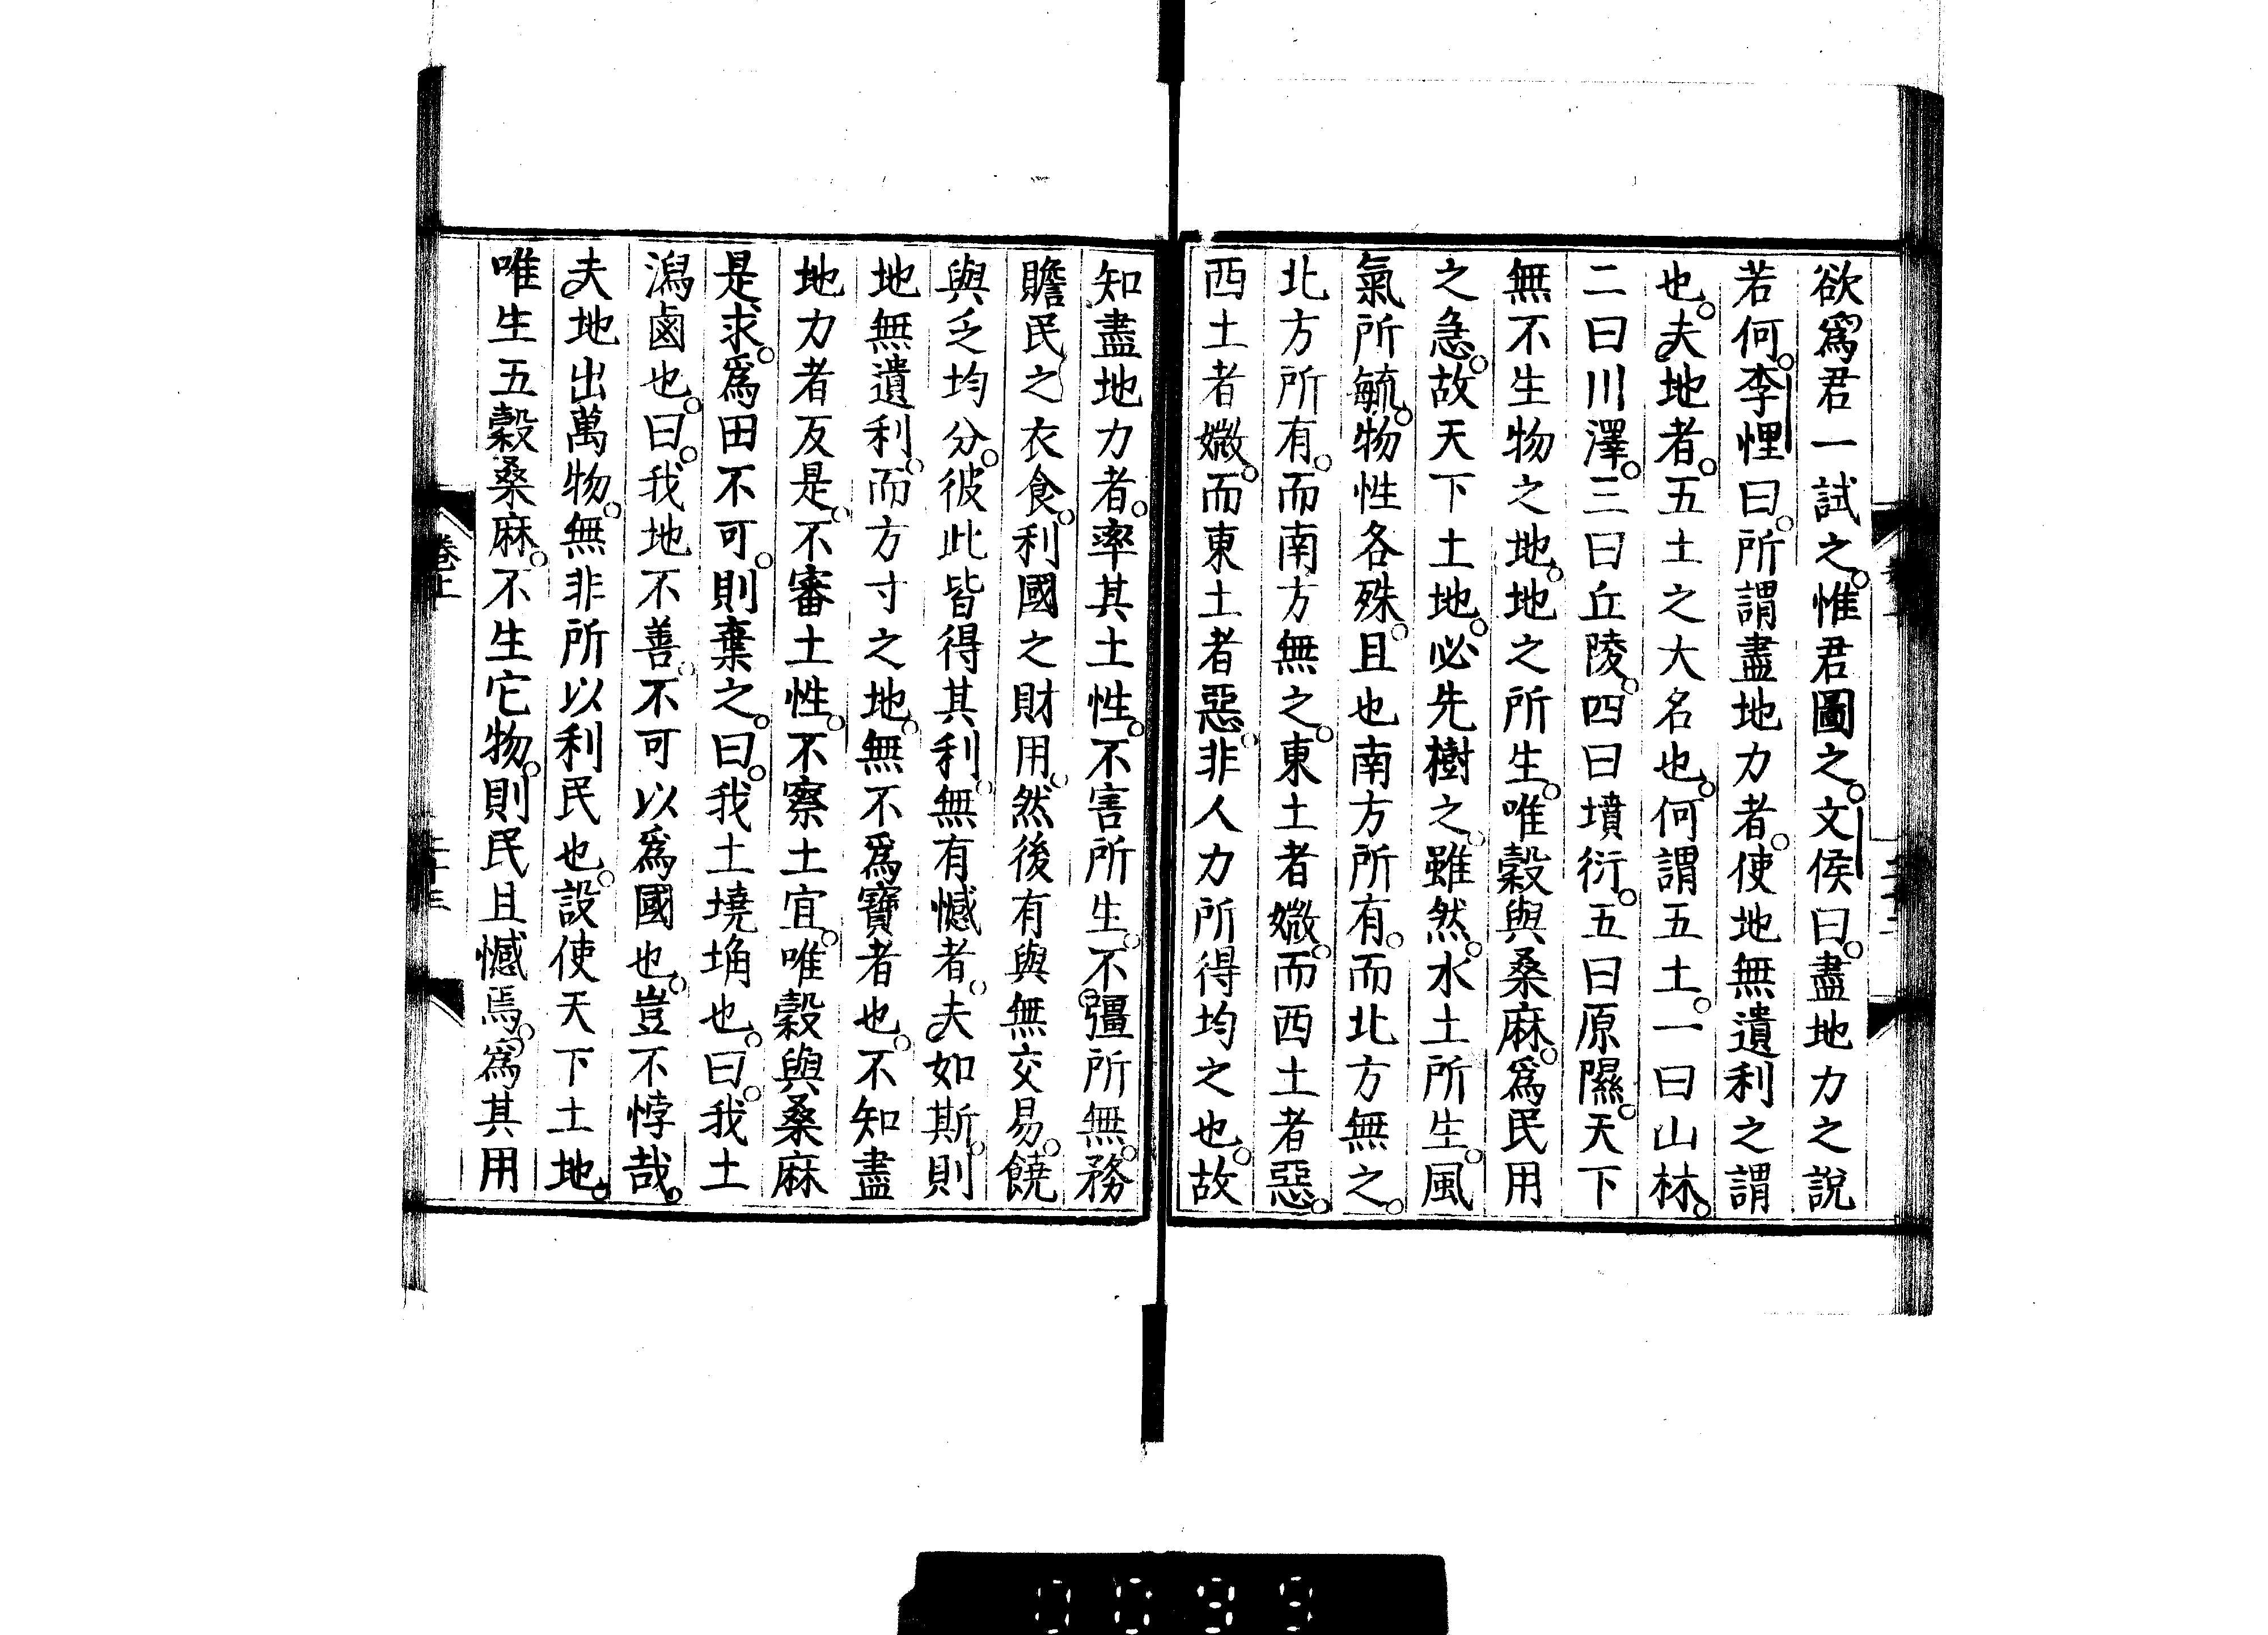 欲爲君一試之。惟君圖之。文侯曰。盡地力之說
若何。李悝曰。所謂盡地力者。使地無遺利之謂
也。夫地者。五土之大名也。何謂五土。一曰山林。
二曰川澤。三曰丘陵。四曰墳衍。五曰原隰。天下
無不生物之地。地之所生。唯穀與桑麻。爲民用
之急。故天下土地。必先樹之。雖然。水土所生。風
氣所毓。物性各殊。且也南方所有。而北方無之。
北方所有。而南方無之。東土者媺。而西土者惡。
西土者媺。而東土者惡。非人力所得均之也。故
知盡地力者。率其土性。不害所生。不彊所無。務
贍民之衣食。利國之財用。然後有與無交易。饒
與乏均分。彼此皆得其利。無有憾者。夫如斯。則
地無遺利。而方寸之地。無不爲寶者也。不知盡
地力者反是。不審土性。不察土宜。唯穀與桑麻
是求。爲田不可。則棄之。曰。我土墝埆也。曰。我土
潟鹵也。曰。我地不善。不可以爲國也。豈不悖哉。
夫地出萬物。無非所以利民也。設使天下土地。
唯生五穀桑麻。不生它物。則民且憾焉。爲其用
卷上